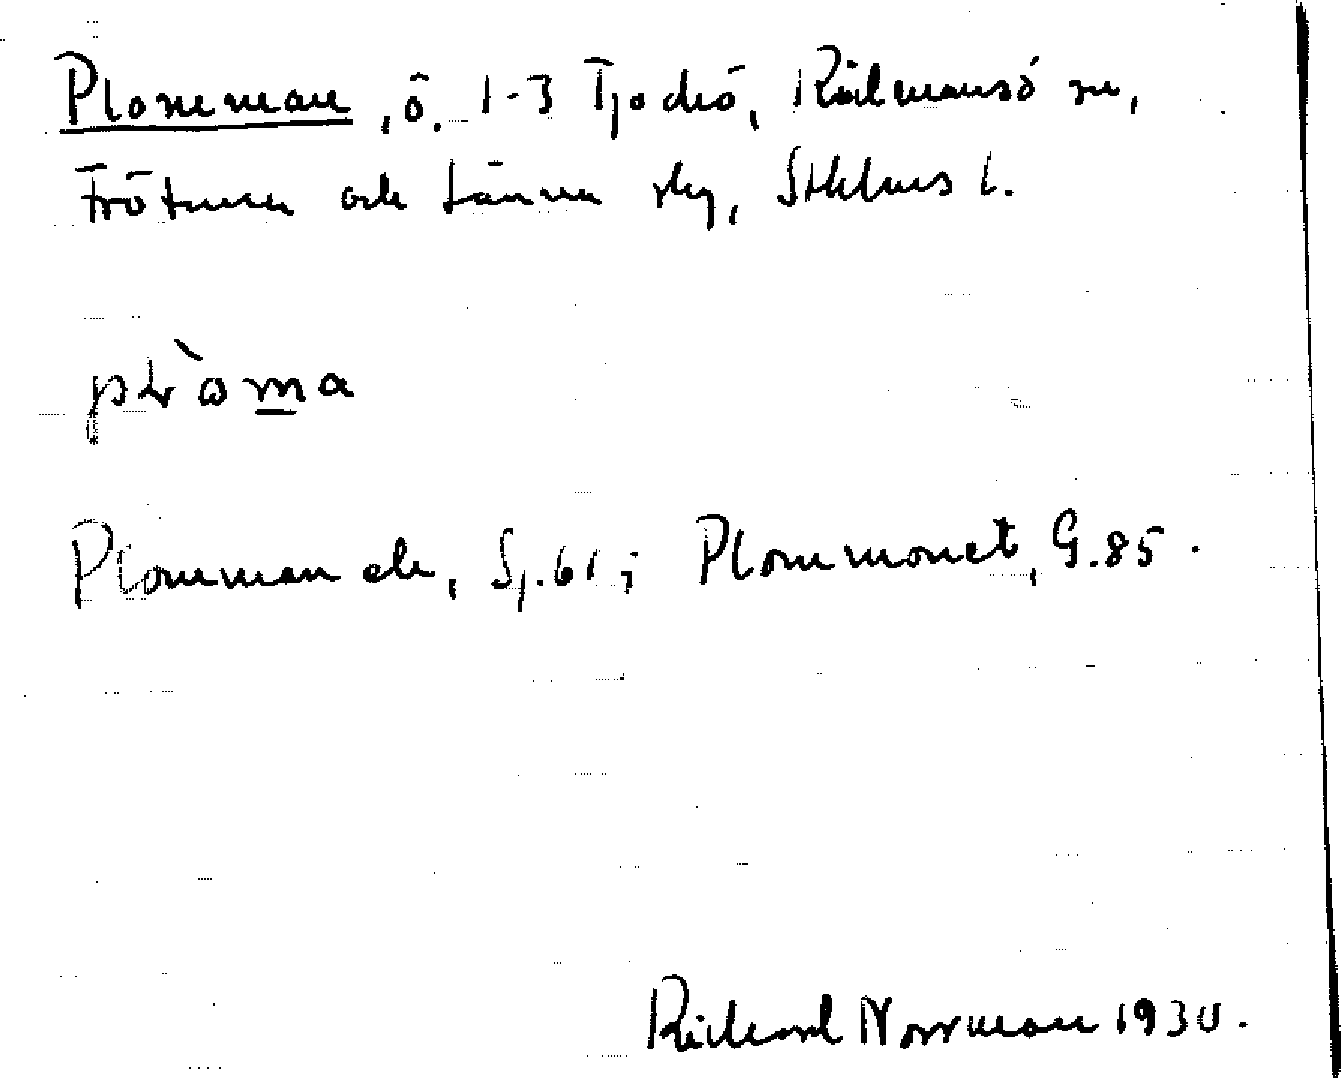 Plomman, ö. 1-3 Tjockö, Rådmansö sn,
Frötuna och Länna slg, Sthlms l.
plòma
Plomman ek, Sj.61; Plommonet, G.85.
Richard Norrman 1930.